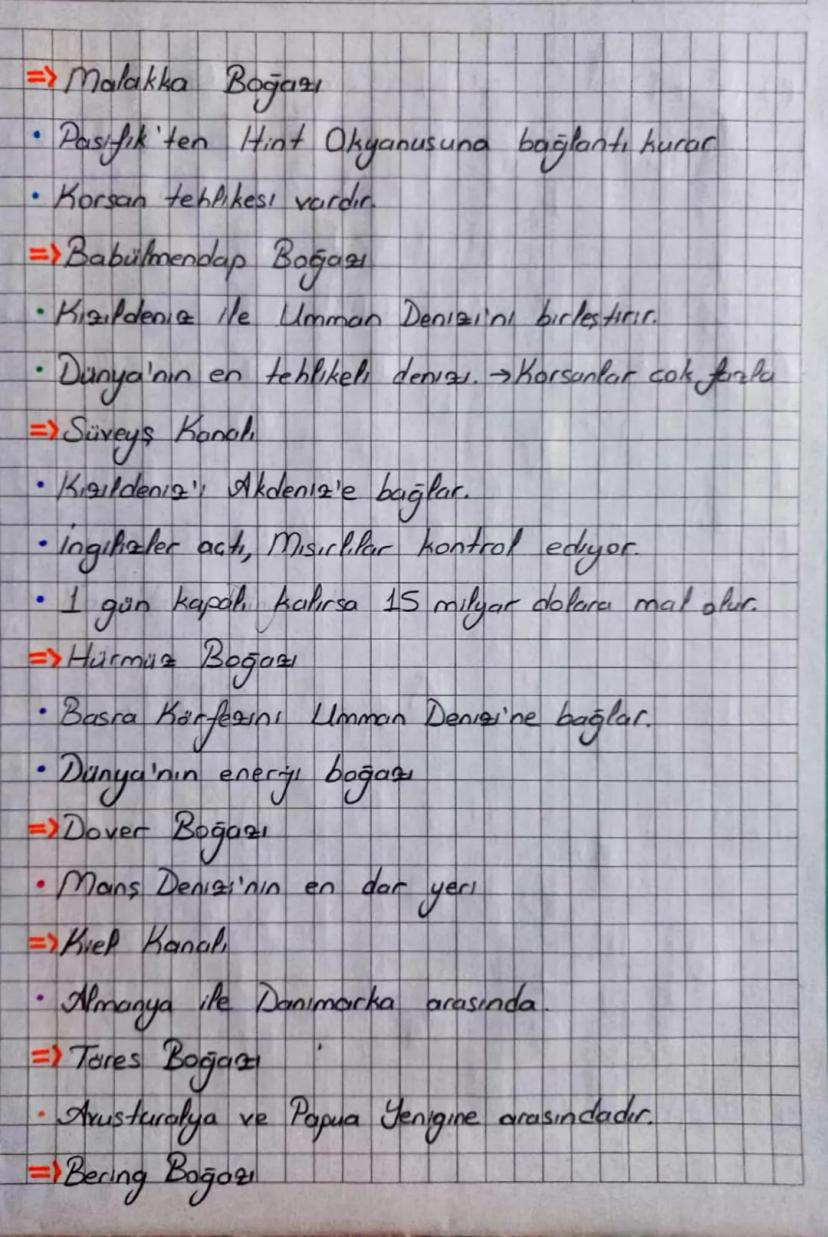 => Malakka Boğazı
• Pasifik'ten Hint Okyanusuna bağlantı kurar
• Korsan tehlikesi vardır.
=> Babülmendap Boğazı
• Kızıldeniz ile Umman Denizi'ni birleştirir.
• Dünya'nın en tehlikeli denizi. → Korsanlar çok fazla
=> Süveyş Kanalı
• Kızıldeniz'i Akdeniz'e bağlar.
• İngilizler açtı, Mısırlılar kontrol ediyor.
• 1 gün kapalı kalırsa 15 milyar dolara mal olur.
=> Hürmüz Boğazı
• Basra Körfezini Umman Denizi'ne bağlar.
• Dünya'nın enerji boğazı
=> Dover Boğazı
• Manş Denizi'nin en dar yeri
=> Kiel Kanalı
• Almanya ile Danimarka arasında.
=> Tores Boğazı
• Avusturalya ve Papua Yenigine arasındadır.
=> Bering Boğazı